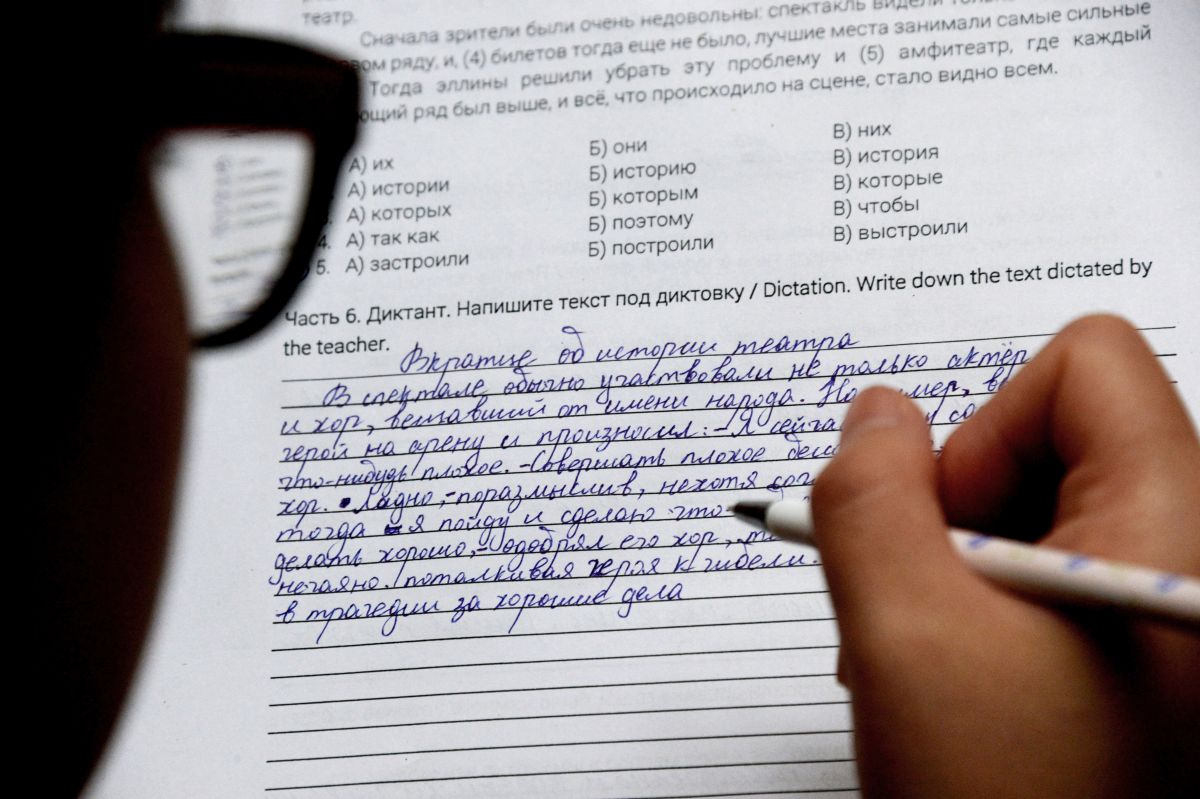 театр.
Сначала зрители были очень недовольны: спектакль видели
ряду, и, (4) билетов тогда еще не было, лучшие места занимали самые сильные
Тогда эллины решили убрать эту проблему и (5) амфитеатр, где каждый
ряд был выше, и всё, что происходило на сцене, стало видно всем.
А) их Б) они В) них
А) истории Б) историю В) история
А) которых Б) которым В) которые
4. А) так как Б) поэтому В) чтобы
5. А) застроили Б) построили В) выстроили
Часть 6. Диктант. Напишите текст под диктовку / Dictation. Write down the text dictated by
the teacher.
Вкратце об истории театра
В спектале обычно участвовали не только актёр
и хор, вещавший от имени народа.
герой на арену и произносил: - Я
что-нибудь плохое. - Совершать плохое
хор. Ладно, - поразмыслив, нехотя
тогда я пойду и сделаю что-
делать хорошо, - одобрял его хор,
нечаяно поталкивая героя к гибели.
в трагедии за хорошие дела